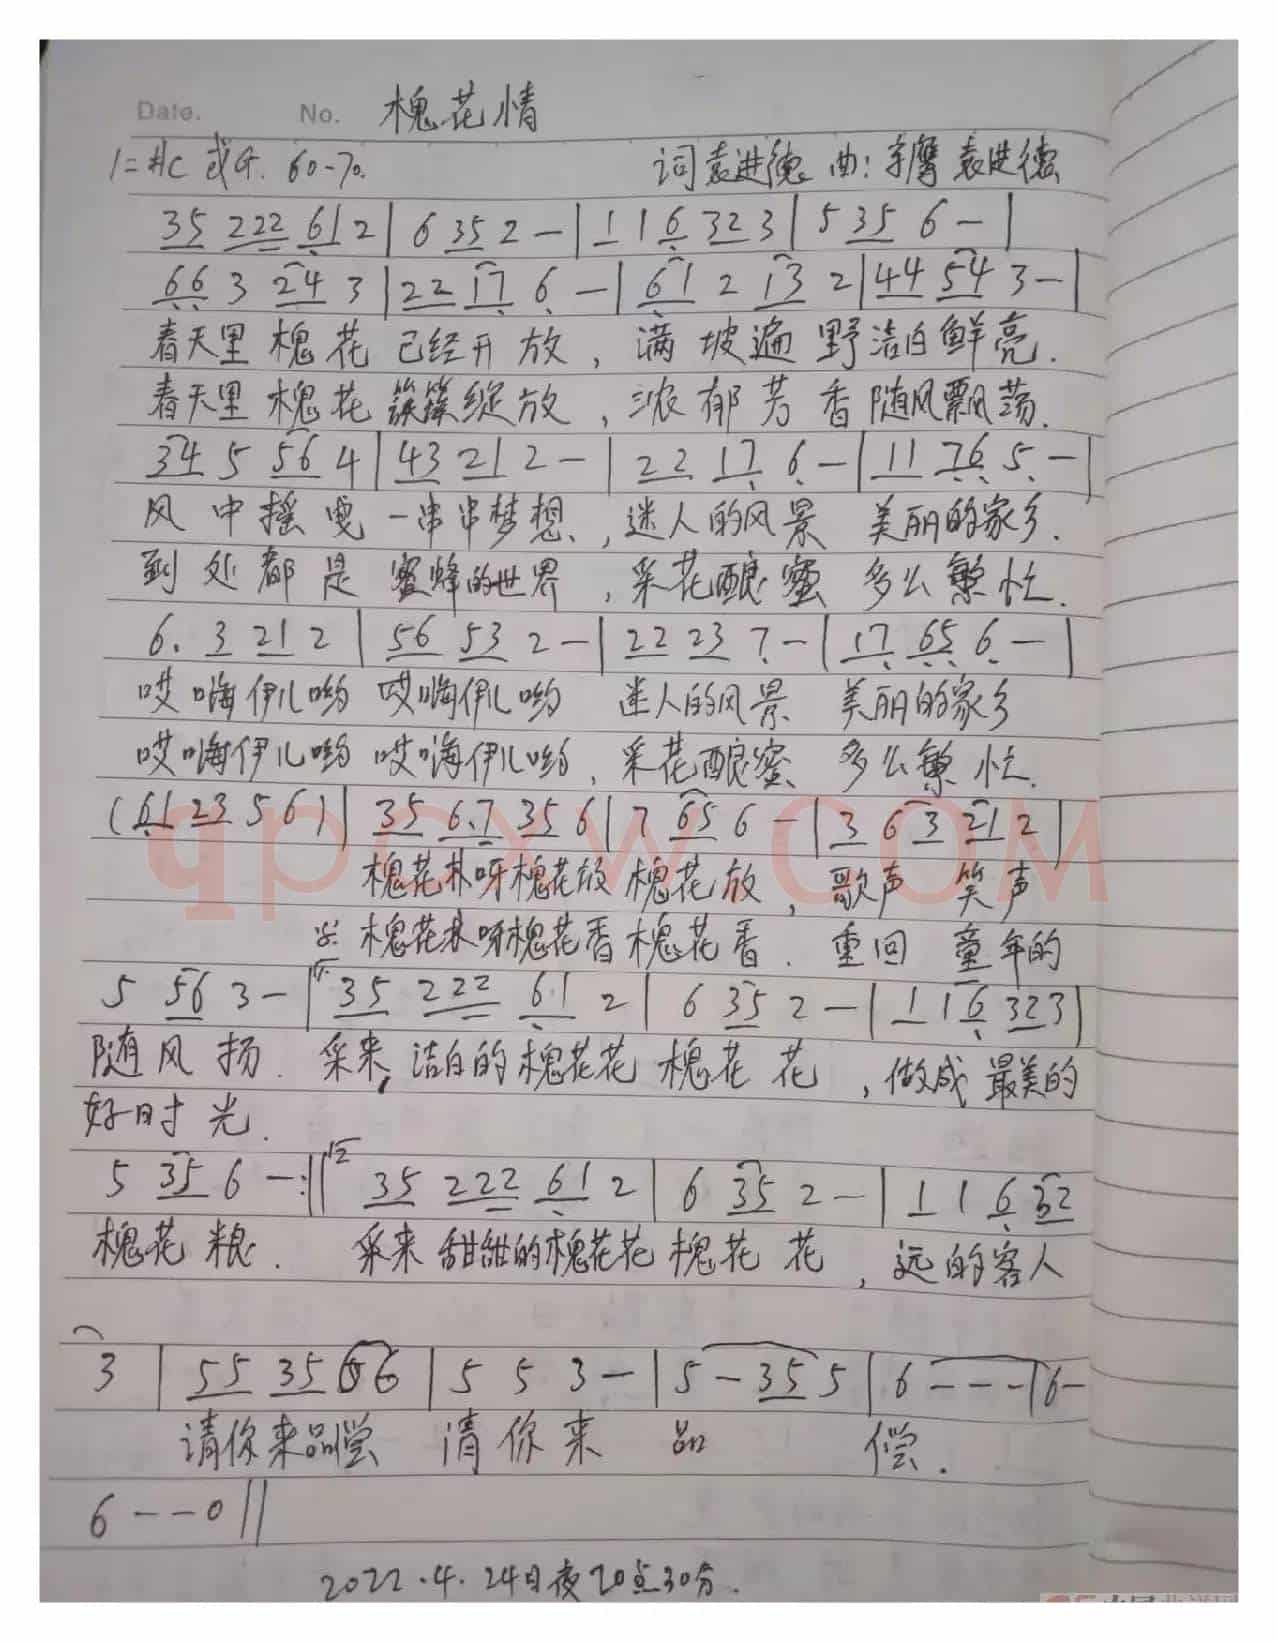 Date. No. 槐花情
1=#C 或G. 60-70. 词袁进德 曲: 李鹰 袁进德
35 222 61 2 | 6 35 2 — | 1 1 6 32 3 | 5 35 6 — |
66 3 24 3 | 22 17 6 — | 61 2 13 2 | 44 54 3 — |
春天里 槐花 已经开放, 满坡遍野洁白鲜亮.
春天里 槐花 簇簇绽放, 浓郁芳香随风飘荡.
34 5 56 4 | 43 21 2 — | 22 17 6 — | 11 76 5 — |
风中摇曳一串串梦想、, 迷人的风景 美丽的家乡.
到处都是 蜜蜂的世界, 采花酿蜜 多么繁忙.
6. 3 21 2 | 56 53 2 — | 22 23 7 — | 17 65 6 — |
哎嗨伊儿哟 哎嗨伊儿哟 迷人的风景 美丽的家乡
哎嗨伊儿哟 哎嗨伊儿哟, 采花酿蜜 多么繁忙.
(61 23 5 6) | 35 6.7 35 6 | 7 65 6 — | 3 6 3 21 2 |
qpcxw.COM
槐花林呀槐花放 槐花放, 歌声 笑声
槐花林呀槐花香 槐花香. 重回 童年的
5 56 3 — | 35 222 61 2 | 6 35 2 — | 1 1 6 32 3 |
随风扬. 采来, 洁白的槐花花 槐花花, 做成最美的
好时光.
5 35 6 — :|| 35 222 61 2 | 6 35 2 — | 1 1 6 32
槐花粮. 采来甜甜的槐花花 槐花花, 远的客人
3 | 55 35 66 | 5 5 3 — | 5 — 35 5 | 6 — — — | 6 —
请你来品尝 请你来 品 偿.
6 — — 0 ||
2022.4.24日夜20点30分.